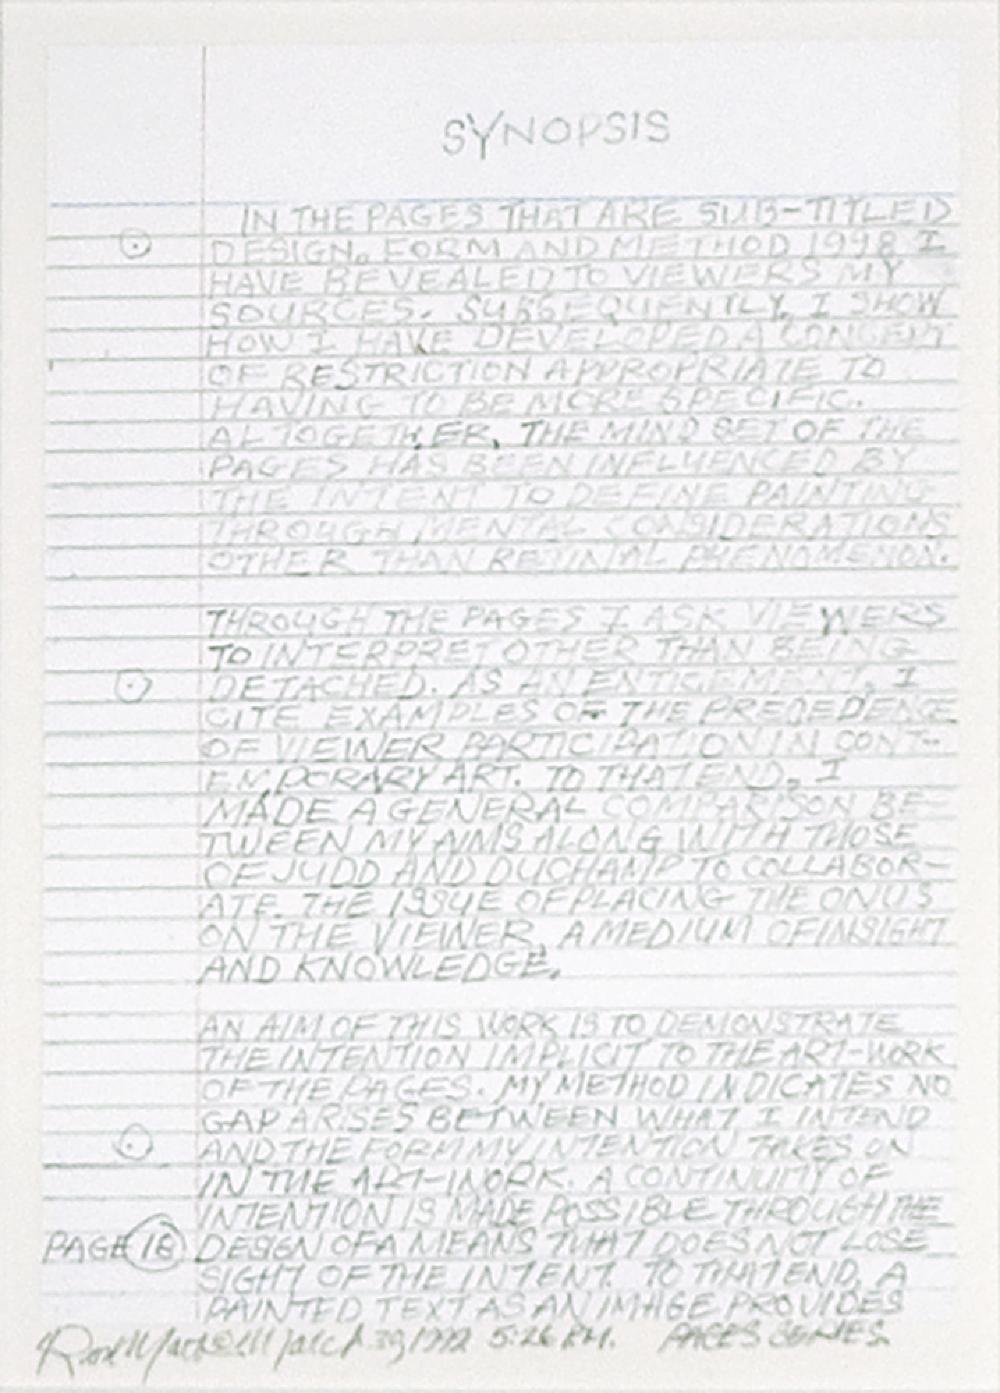 SYNOPSIS
IN THE PAGES THAT ARE SUB-TITLED
DESIGN. FORM AND METHOD 1998 I
HAVE REVEALED TO VIEWERS MY
SOURCES. SUBSEQUENTLY, I SHOW
HOW I HAVE DEVELOPED A CONCEPT
OF RESTRICTION APPROPRIATE TO
HAVING TO BE MORE SPECIFIC.
ALTOGETHER, THE MIND SET OF THE
PAGES HAS BEEN INFLUENCED BY
THE INTENT TO DEFINE PAINTING
THROUGH MENTAL CONSIDERATIONS
OTHER THAN RETINAL PHENOMENON.
THROUGH THE PAGES I ASK VIEWERS
TO INTERPRET OTHER THAN BEING
DETACHED. AS AN ENTICEMENT, I
CITE EXAMPLES OF THE PRECEDENCE
OF VIEWER PARTICIPATION IN CONT-
EMPORARY ART. TO THAT END, I
MADE A GENERAL COMPARISON BE-
TWEEN MY AIMS ALONG WITH THOSE
OF JUDD AND DUCHAMP TO COLLABOR-
ATE. THE ISSUE OF PLACING THE ONUS
ON THE VIEWER, A MEDIUM OF INSIGHT
AND KNOWLEDGE.
AN AIM OF THIS WORK IS TO DEMONSTRATE
THE INTENTION IMPLICIT TO THE ART-WORK
OF THE PAGES. MY METHOD INDICATES NO
GAP ARISES BETWEEN WHAT I INTEND
AND THE FORM MY INTENTION TAKES ON
IN THE ART-WORK. A CONTINUITY OF
INTENTION IS MADE POSSIBLE THROUGH THE
PAGE 18 DESIGN OF A MEANS THAT DOES NOT LOSE
SIGHT OF THE INTENT. TO THAT END, A
PAINTED TEXT AS AN IMAGE PROVIDES
March 30, 1992 5:26 P.M. PAGES SERIES